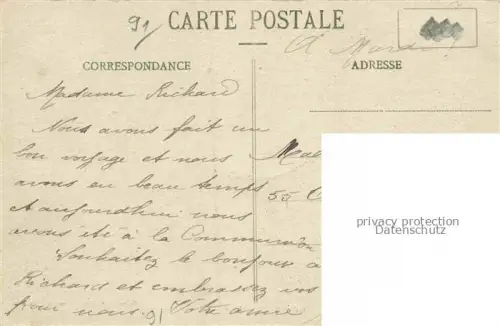 91
CARTE POSTALE
CORRESPONDANCE
ADRESSE
Madame Richard
Nous avons fait un
bon voyage et nous
avons eu beau temps
et aujourdhui nous
avons été à la Communion
Souhaitez le bonjour a
Richard et embrassez vos
pour nous. Votre amie
91
55
privacy protection
Datenschutz